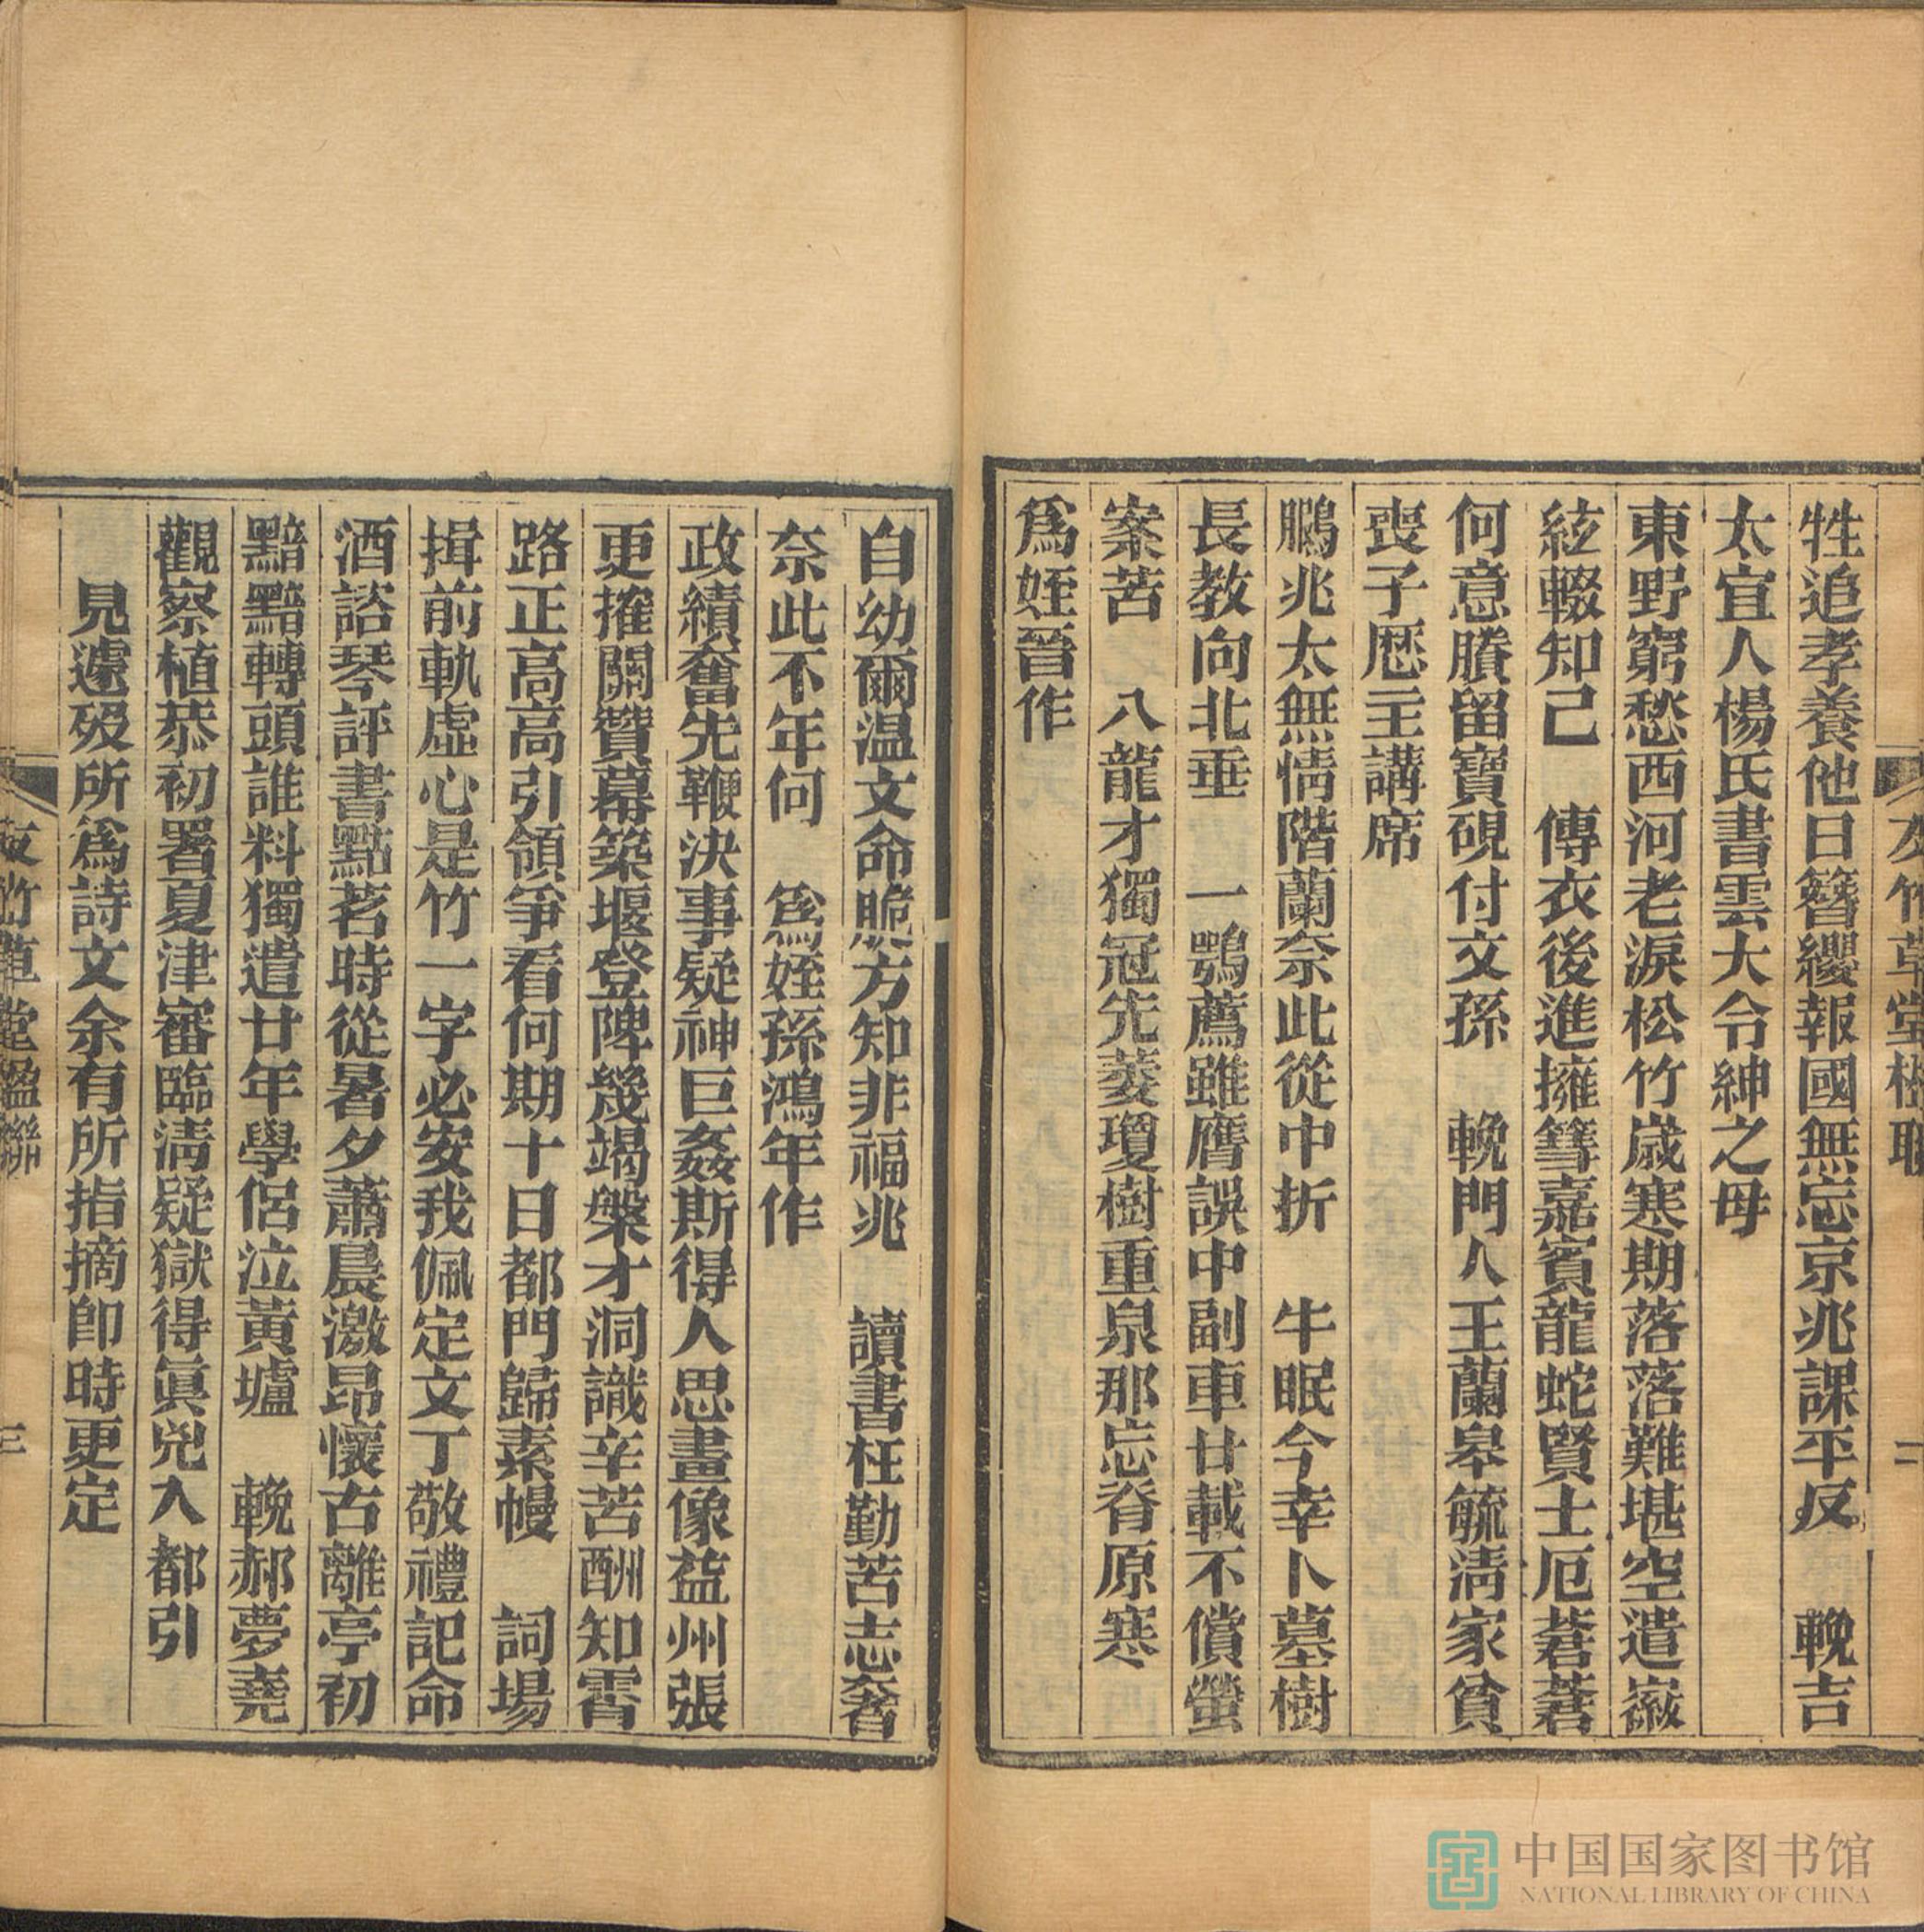 牲追孝養他日簪纓報國無忘京兆課平反　輓吉
太宜人楊氏書雲大令紳之母
東野窮愁西河老淚松竹歲寒期落落難堪空遣嶽
絃輟知己　傳衣後進擁篲嘉賓龍蛇賢士厄蒼蒼
何意賸留寶硯付文孫　輓門人王蘭皋毓淸家貧
喪子歷主講席
鵬兆太無情階蘭奈此從中折　牛眠今幸卜墓樹
長教向北垂　一鶚薦雖膺誤中副車廿載不償螢
案苦　八龍才獨冠先菱瓊樹重泉那忘脊原寒
爲姪晉作
自幼爾温文命脆方知非福兆　讀書枉勤苦志奢
奈此不年何　爲姪孫鴻年作
政績奮先鞭決事疑神巨姦斯得人思畫像益州張
更搉關贊幕築堰登陴幾竭槃才洞識辛苦酬知霄
路正高高引領爭看何期十日都門歸素幔　詞場
揖前軌虛心是竹一字必安我佩定文丁敬禮記命
酒談琴評書點茗時從晷夕蕭晨激昂懷古離亭初
黯黯轉頭誰料獨遣廿年學侶泣黃壚　輓郝夢堯
觀察植恭初署夏津審臨淸疑獄得眞兇入都引
見遽歿所爲詩文余有所指摘卽時更定
友竹草堂楹聯
二
友竹草堂楹聯
三
中国国家图书馆
NATIONAL LIBRARY OF CHINA